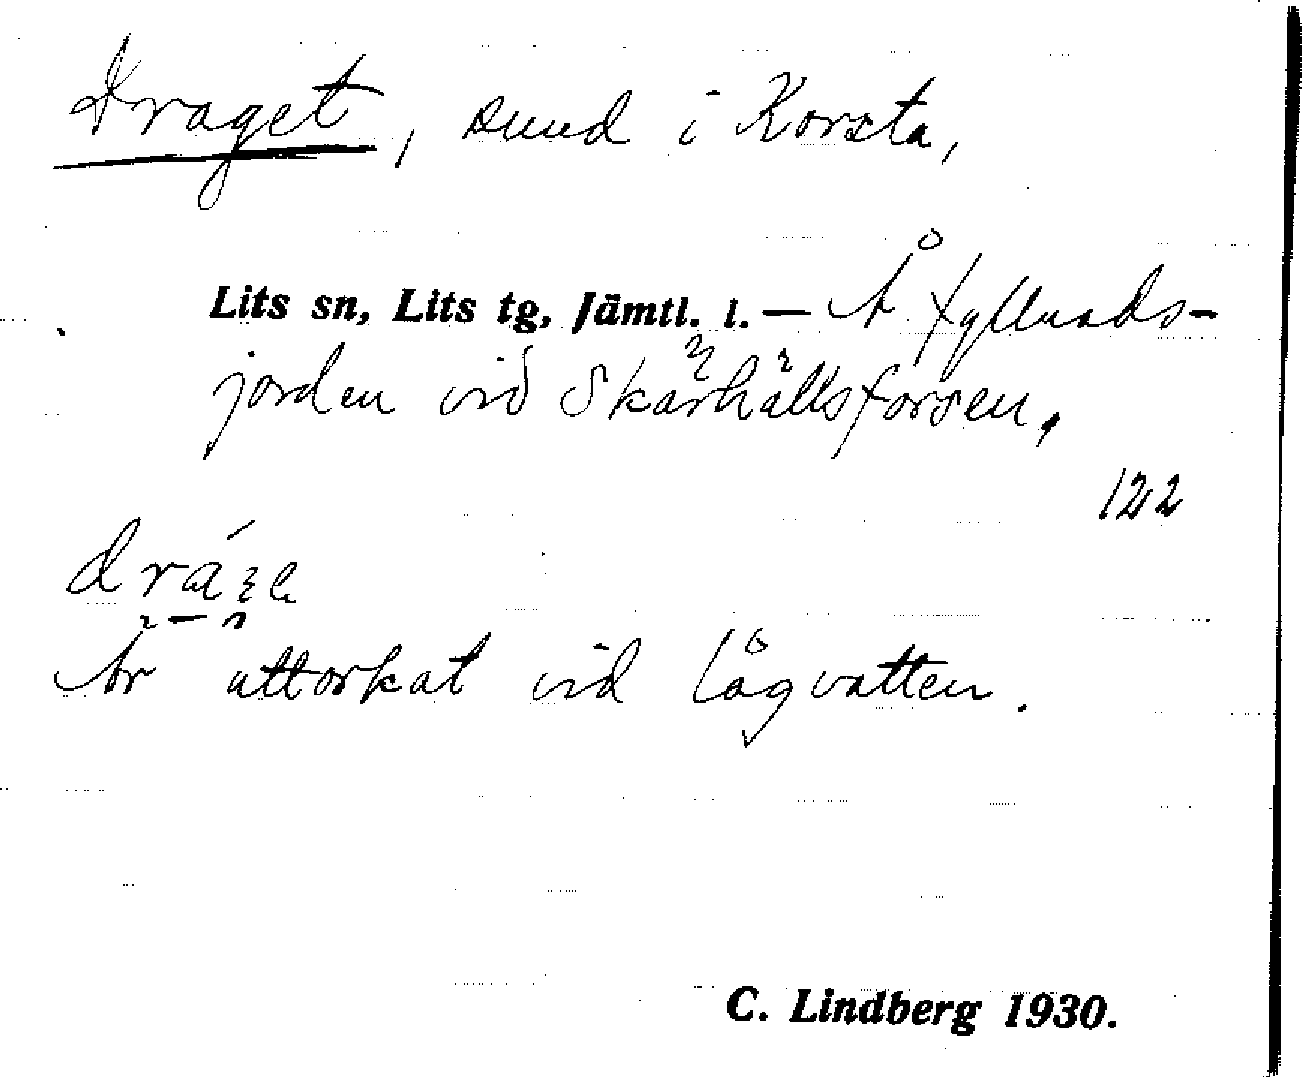 Draget, sund i Korsta,
Lits sn, Lits tg, Jämtl. l. — Å fyllnads-
jorden vid Skärhällsforsen.
122
Är uttorkat vid lågvatten.
C. Lindberg 1930.